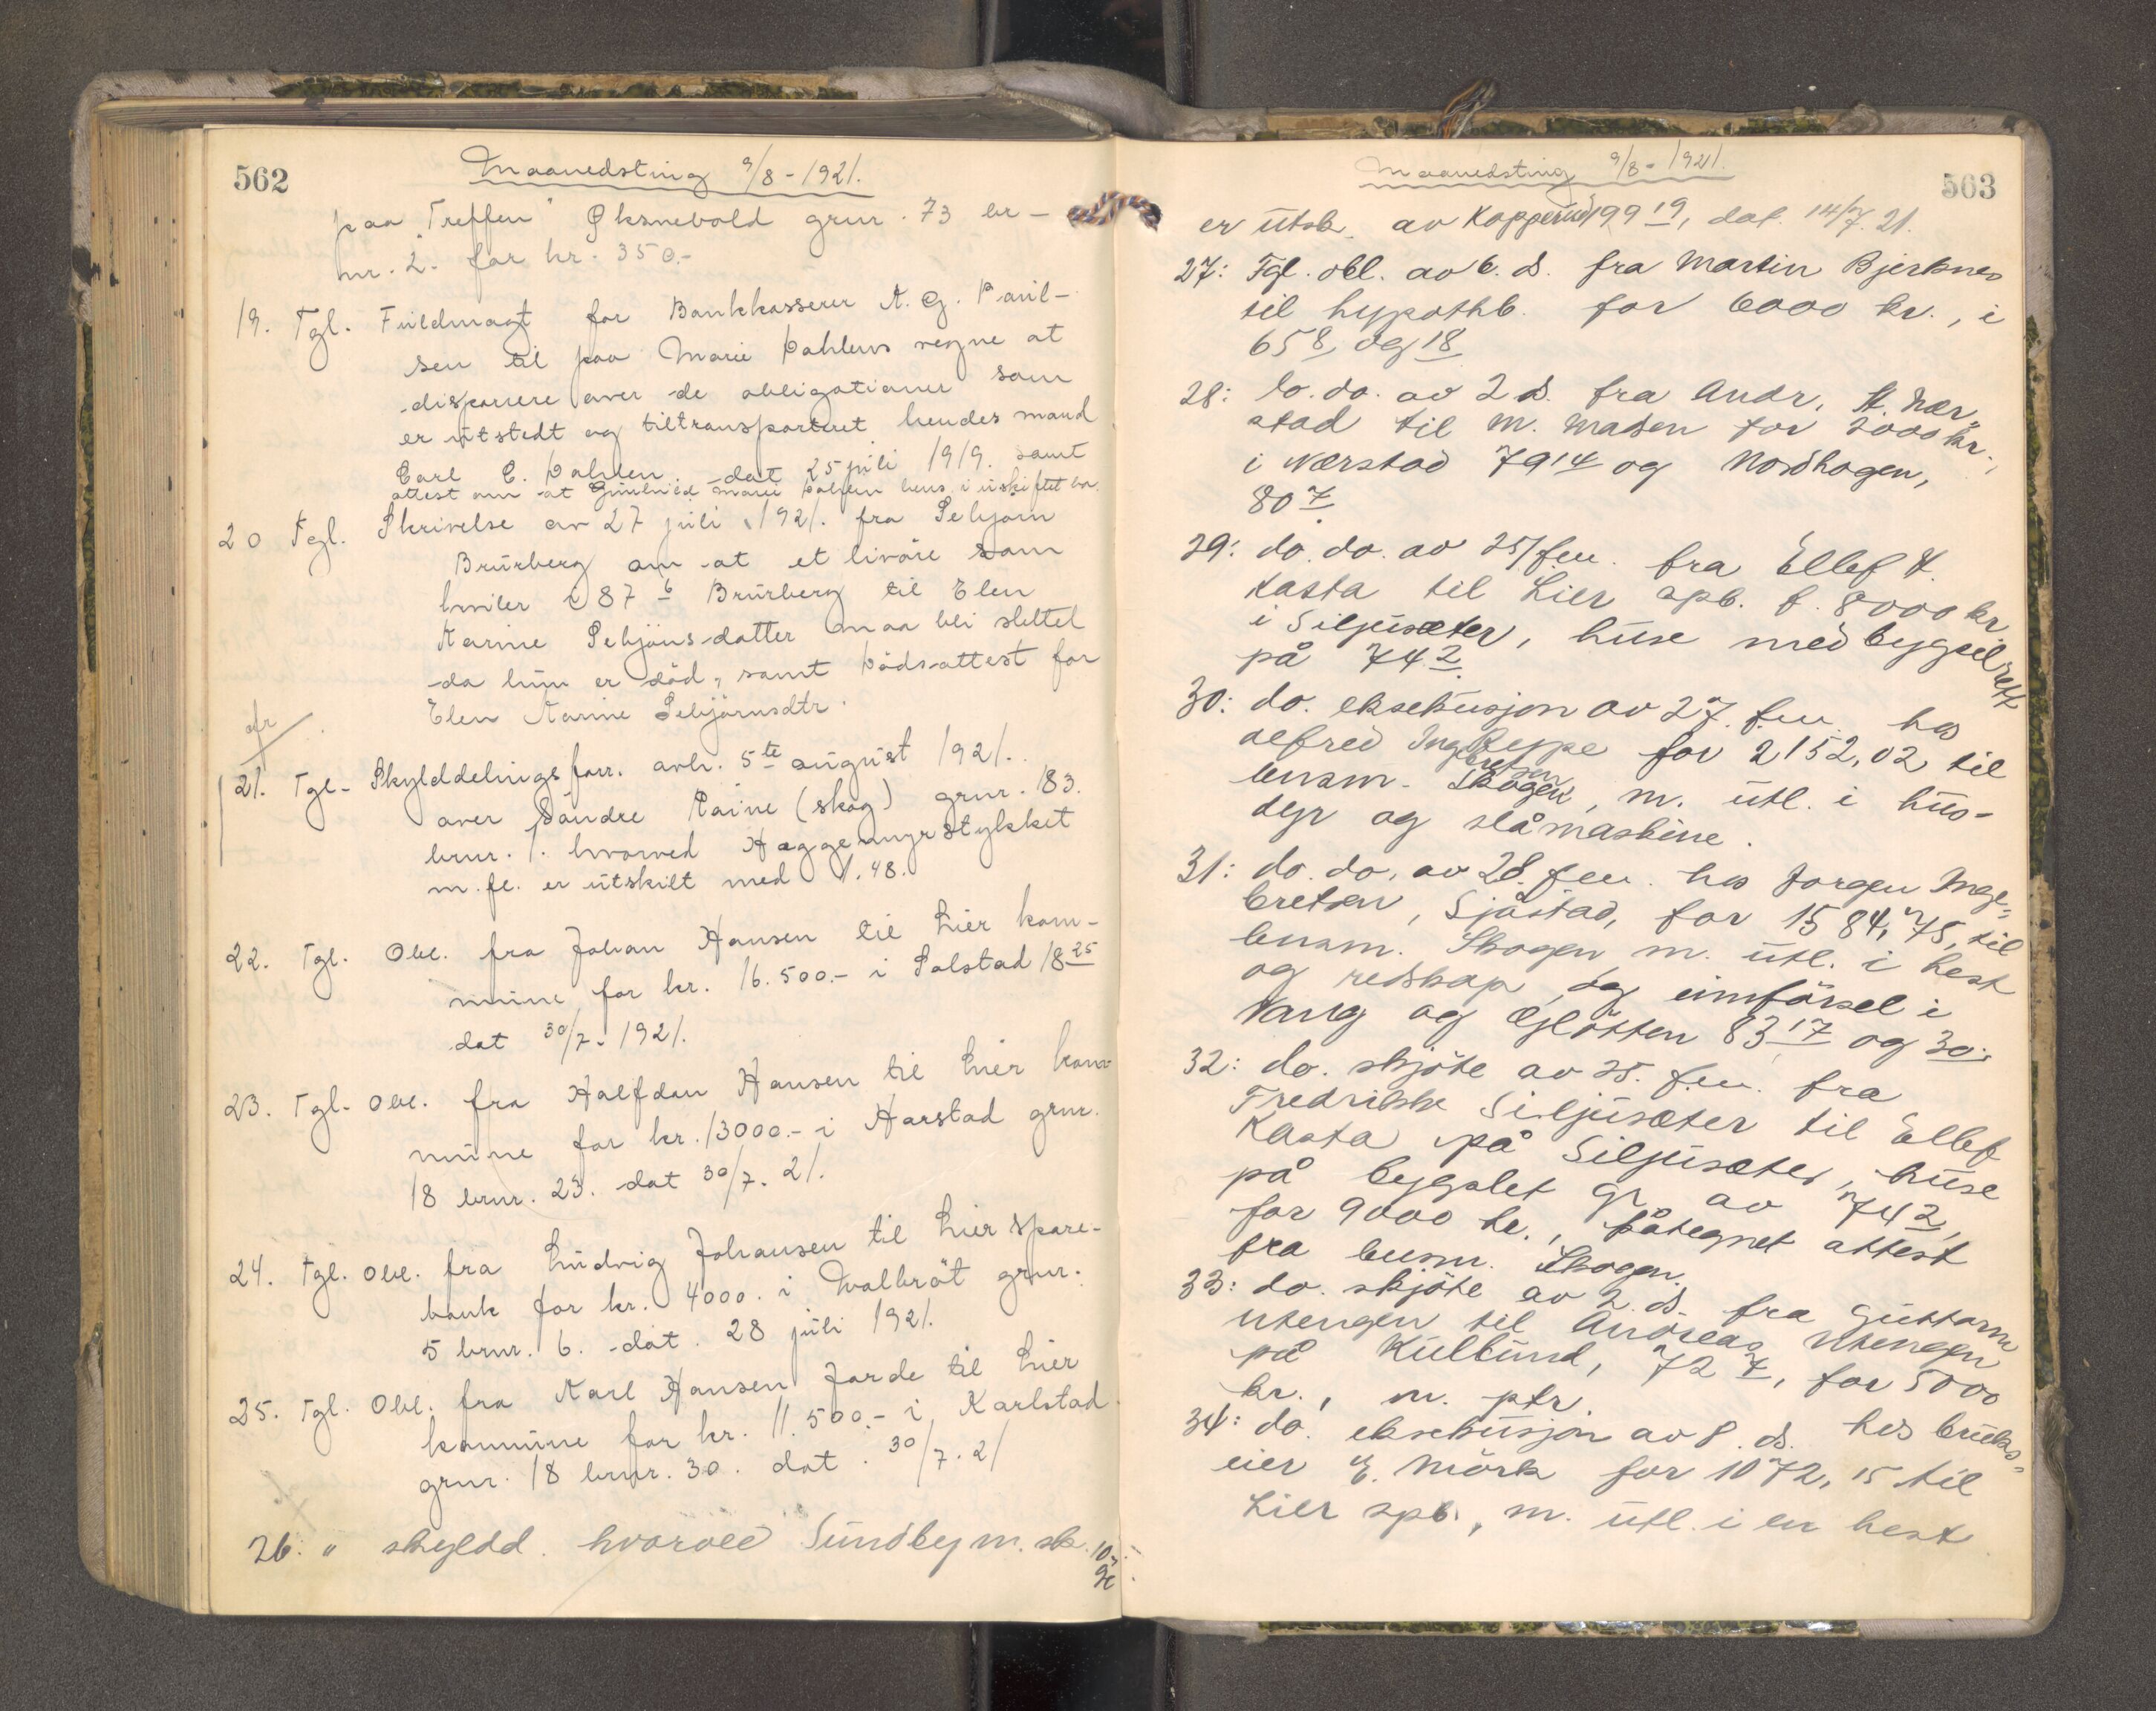 562
Maanedsting 9/8-1921.
paa "Treffen" Øksnevold grnr. 73 br-
nr. 2. for kr. 350.-
19. Tgl. Fuldmagt for Bankkasserer A. G. Paul-
sen til paa Marie Dahlens vegne at
disponere over de obligationer som
er utstedt og tiltransporteret hendes mand
Carl C. Dahlen dat 25 juli 1919. samt
attest om at Gunhild Marie Dahlen hens. i uskiftet bo.
20 Tgl. Skrivelse av 27 juli 1921. fra Sebjørn
Brurberg om at et livøre som
hviler i 87 6 Brurberg til Elen
Karine Sebjöns-datter maa bli slettet
da hun er död, samt Dödsattest for
Elen Karine Sebjörnsdtr.
afr
21. Tgl. Skylddelingsforr. avh. 5te august 1921.
over Søndre (skog) grnr. 183.
brnr. 1. hvorved Haggemyrstykket
m. fl. er utskilt med 1.48.
22. Tgl. Obl. fra Johan Hansen til Lier kom-
mune for kr. 16.500.- i Solstad 18 25
dat 30/7-1921.
23. Tgl. Obl. fra Halfdan Hansen til Lier kom-
mune for kr. 13000.- i Harstad grnr.
18 brnr. 23. dat 30/7. 21.
24. Tgl. Obl. fra Ludvig Johansen til Lier Spare-
bank for kr. 4000. i Valbröt grnr.
5 brnr. 6. dat. 28 juli 1921.
25. Tgl. Obl. fra Karl Hansen Jorde til Lier
kommune for kr. 11.500.- i Karlstad
grnr. 18 brnr. 30. dat. 30/7. 21
26. " skyldd. hvorved Sundby m. sk. 10
563
Maanedsting 9/8-1921.
er utsk. av Kopperud 199 19, dat. 14/7. 21.
27: Tgl. obl. av 6. d. fra Martin Bjerknes
til hypothb. for 6000 kr., i
65 8 og 18
28: do. do. av 2 d. fra Andr. H. Nær-
stad til M. Madsen for 2000 kr.,
i Nærstad 79 14 og Nordhagen,
80 7.
29: do. do. av 25/fm. fra Ellef H.
Kasta til Lier spb. f. 8000 kr
i Siljusæter, huse med bygselrett
på 74 2.
30: do. eksekusjon av 27. fm. hos
Alfred Ingebretsen Reppe for 2152,02 til
lensm. Skogen, m. utl. i hus-
dyr og slåmaskine.
31: do. do. av 28. fm. hos Jorgen Inge-
bretsen, Sjåstad, for 1584,75, til
lensm. Skogen m. utl. i hest
og redskap, og innförsel i
Vang og Glötten 83 17 og 30.
32: do. skjöte av 25. fm. fra
Fredrikke Siljusæter til Ellef
Kasta på Siljusæter, huse
på bygslet gr. av 74 2,
for 9000 kr., påtegnet attest
fra lensm. Skogen.
33: do. skjöte av 2. d. fra Guttorm
Utengen til Andreas Utengen
på Kulbund, 72 7, for 5000
kr., m. ptr.
34: do. eksekusjon av 8. d. hos bruks-
eier E. Mörk for 1072,15 til
Lier spb., m. utl. i en hest